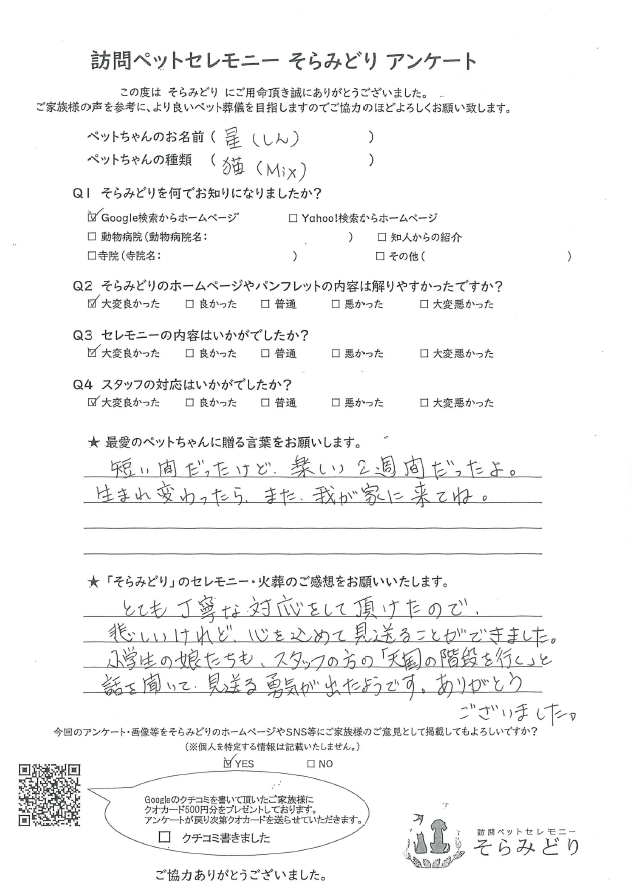 訪問ペットセレモニー そらみどり アンケート
この度は そらみどり にご用命頂き誠にありがとうございました。
ご家族様の声を参考に、より良いペット葬儀を目指しますのでご協力のほどよろしくお願い致します。
ペットちゃんのお名前 ( 星(しん) )
ペットちゃんの種類 ( 猫(Mix) )
Q1 そらみどりを何でお知りになりましたか?
☑ Google検索からホームページ ☐ Yahoo!検索からホームページ
☐ 動物病院(動物病院名: ) ☐ 知人からの紹介
☐ 寺院(寺院名: ) ☐ その他( )
Q2 そらみどりのホームページやパンフレットの内容は解りやすかったですか?
☑ 大変良かった ☐ 良かった ☐ 普通 ☐ 悪かった ☐ 大変悪かった
Q3 セレモニーの内容はいかがでしたか?
☑ 大変良かった ☐ 良かった ☐ 普通 ☐ 悪かった ☐ 大変悪かった
Q4 スタッフの対応はいかがでしたか?
☑ 大変良かった ☐ 良かった ☐ 普通 ☐ 悪かった ☐ 大変悪かった
★ 最愛のペットちゃんに贈る言葉をお願いします。
短い間だったけど、楽しい2週間だったよ。
生まれ変わったら、また、我が家に来てね。
★「そらみどり」のセレモニー・火葬のご感想をお願いいたします。
とても丁寧な対応をして頂けたので、
悲しいけれど、心を込めて見送ることができました。
小学生の娘たちも、スタッフの方の「天国の階段を行く」と
話を聞いて、見送る勇気が出たようです。ありがとう
ございました。
今回のアンケート・画像等をそらみどりのホームページやSNS等にご家族様のご意見として掲載してもよろしいですか?
(※個人を特定する情報は記載いたしません。)
☑ YES ☐ NO
Googleのクチコミを書いて頂いたご家族様に
クオカード500円分をプレゼントしております。
アンケートが戻り次第クオカードを送らせていただきます。
☐ クチコミ書きました
訪問ペットセレモニー
そらみどり
ご協力ありがとうございました。